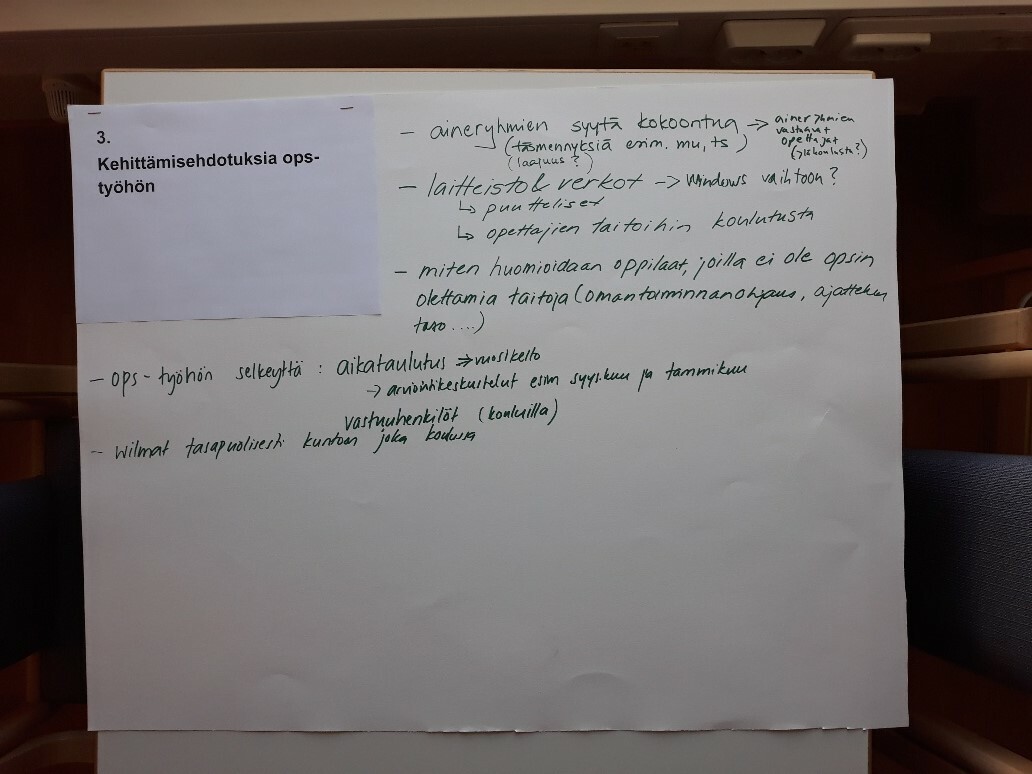 3.
Kehittämisehdotuksia ops-
työhön
- aineryhmien syytä kokoontua → aineryhmien
vastaavat
opettajat
(yläkoulusta?)
(täsmennyksiä esim. mu, ts)
(laajuus?)
- laitteisto & verkot → Windows vaihtoon?
↳ puutteliset
↳ opettajien taitoihin koulutusta
- miten huomioidaan oppilaat, joilla ei ole opsin
olettamia taitoja (omantoiminnanohjaus, ajattelun
taso ....)
- ops-työhön selkeyttä : aikataulutus ⇒ vuosikello
→ arviointikeskustelut esim syyskuu ja tammikuu
vastuuhenkilöt (kouluilla)
- Wilmat tasapuolisesti kuntoon joka koulussa